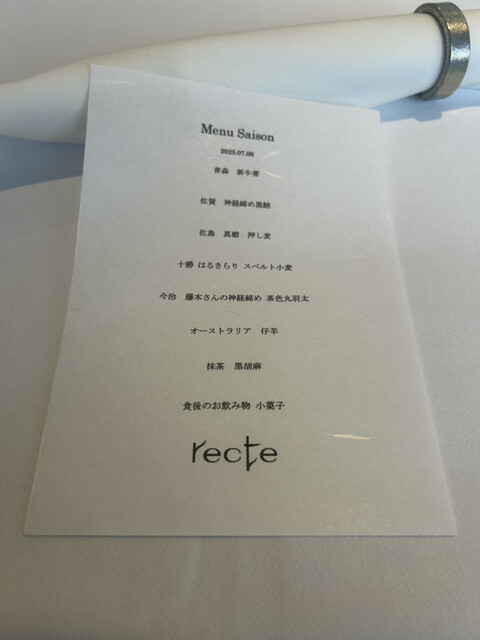 Menu Saison
2025.07.06
青森 新牛蒡
佐賀 神経締め黒鮪
佐島 真蛸 押し麦
十勝 はるきらり スペルト小麦
今治 藤本さんの神経締め 茶色丸羽太
オーストラリア 仔羊
抹茶 黒胡麻
食後のお飲み物 小菓子
recte